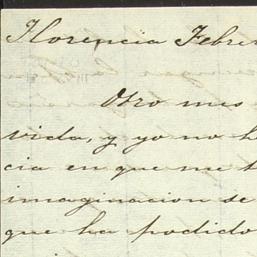 Florencia Febre
Otro mes
vida, y yo no h
cia en que me
imaginacion se
que ha podido